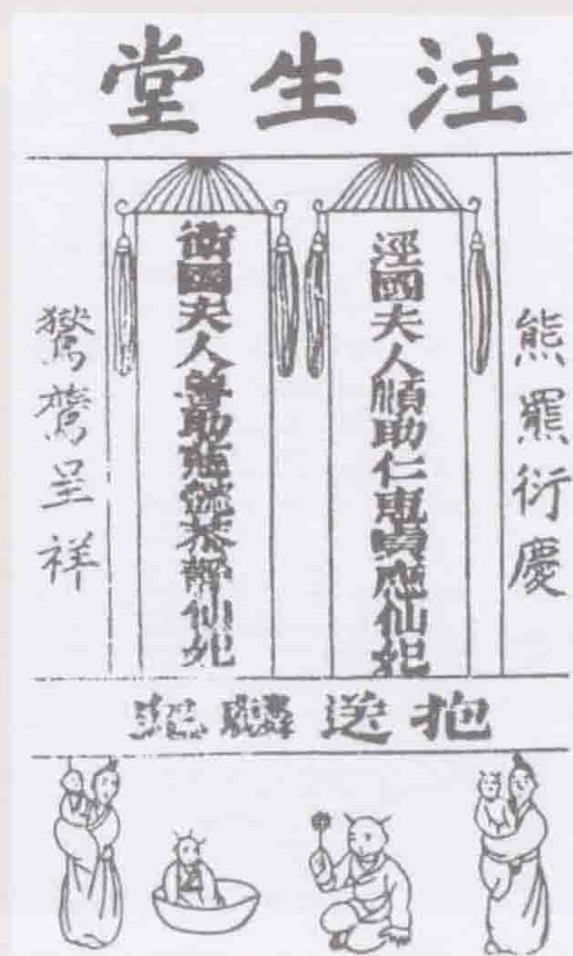 注生堂
熊羆衍慶
涇國夫人順助仁惠應仙妃
衛國夫人善助恭靜仙妃
鸑鷟呈祥
抱送